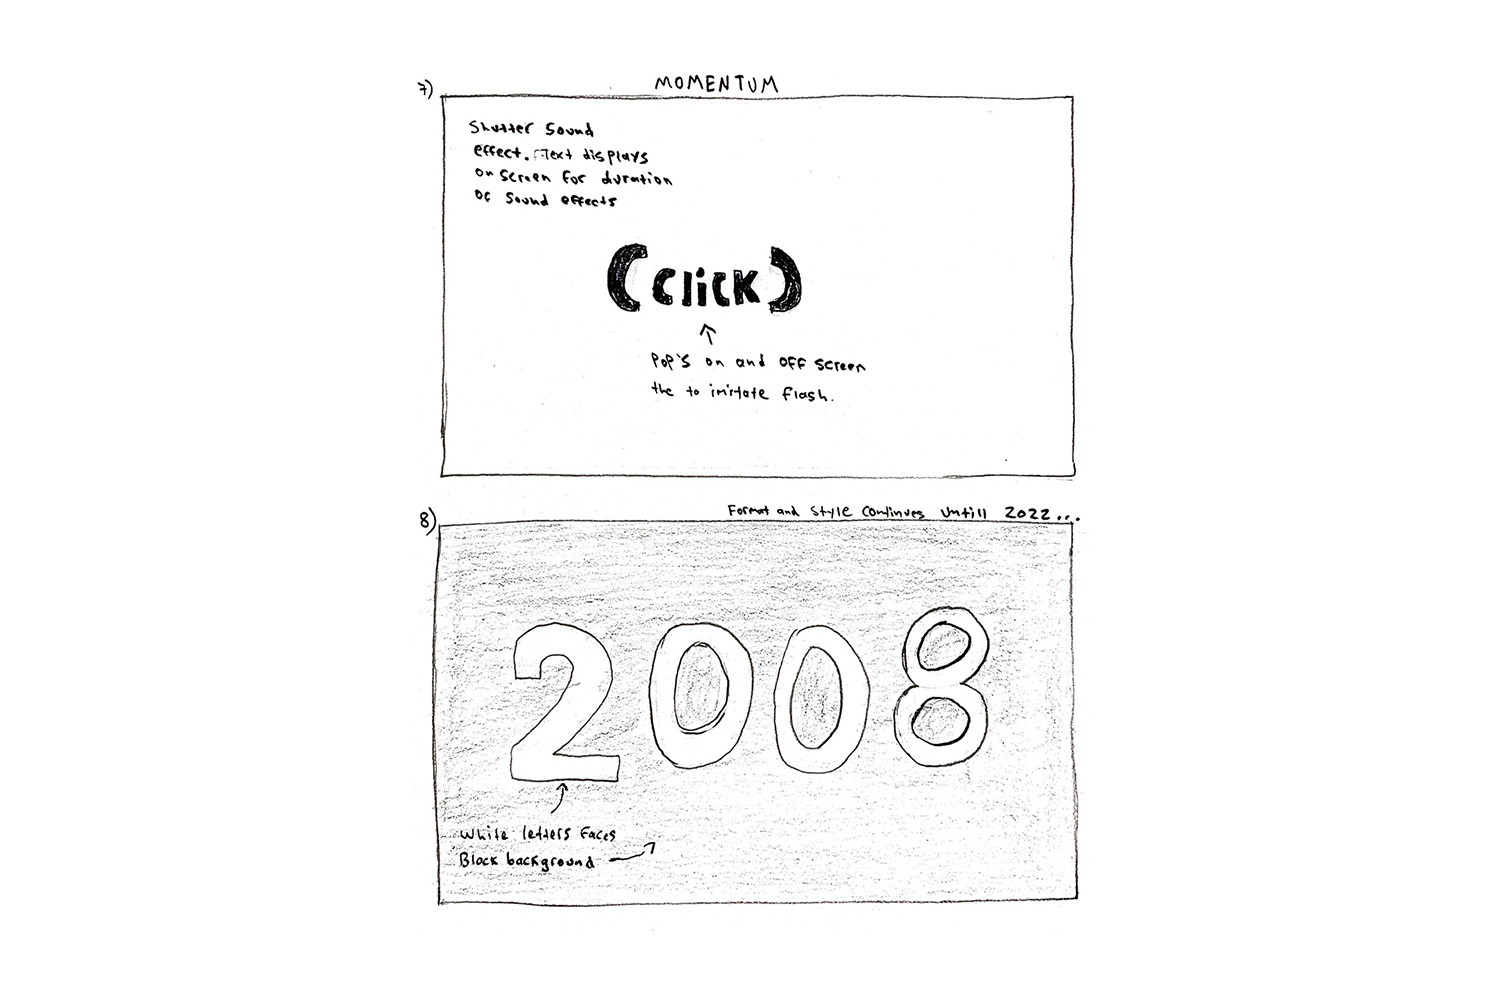 MOMENTUM
7)
Shutter Sound
effect. Text displays
on screen for duration
of sound effects
(Click)
Pop's on and off screen
the to imitate flash.
Format and style continues untill 2022...
8)
2008
White letters faces
Black background